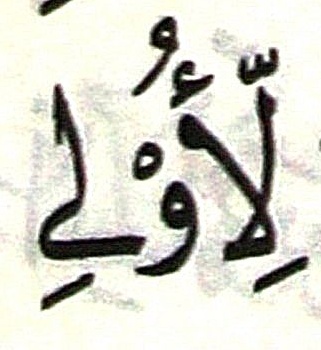 لِّأُوْلِي